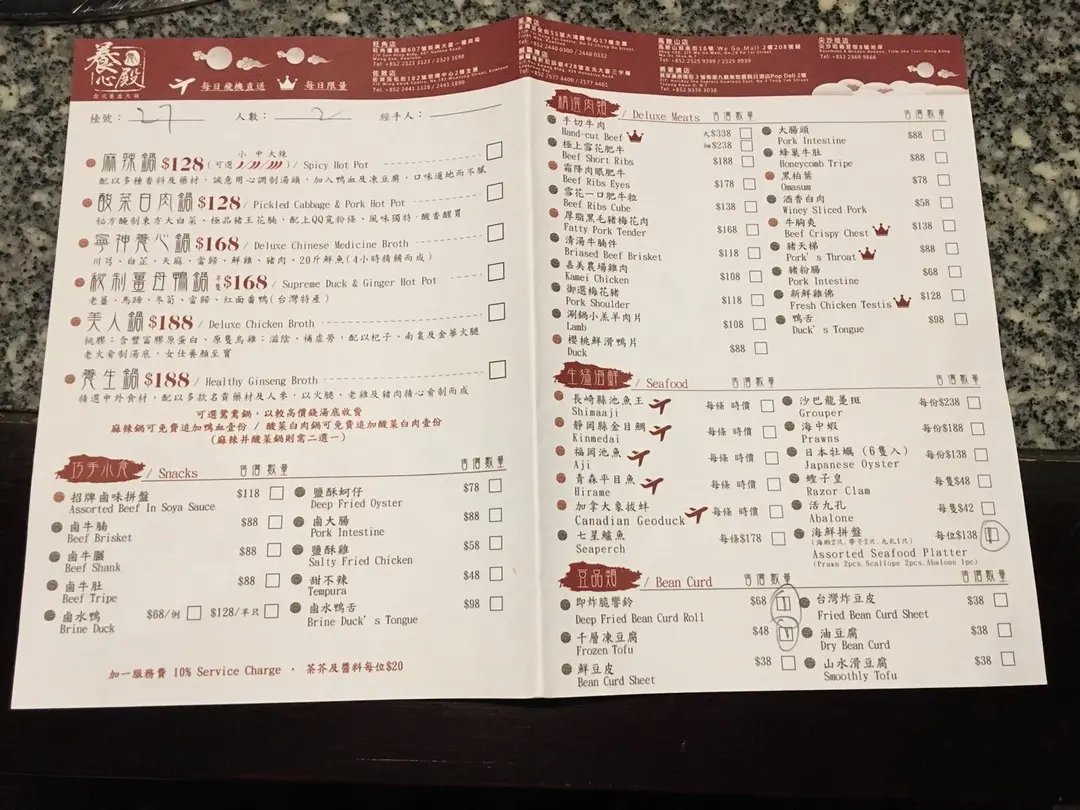 養心殿
台式養生火鍋
每日飛機直送
每日限量
旺角店
佐敦店
荃灣店
銅鑼灣店
馬鞍山店
尖沙咀店
檯號：27
人數：2
經手人：
麻辣鍋 $128 (可選 小 中 大辣) / Spicy Hot Pot
配以多種香料及藥材，誠意用心調制湯頭，加入鴨血及凍豆腐，口味道地而不膩
酸菜白肉鍋 $128 / Pickled Cabbage & Pork Hot Pot
秘方醃制東方大白菜、極品豬王花腩、配上QQ寬粉條、風味獨特，酸香醒胃
寧神養心鍋 $168 / Deluxe Chinese Medicine Broth
川芎、白芷、天麻、當歸、鮮雞、豬肉、20斤鮮魚(4小時精餚而成)
秘制薑母鴨鍋 半隻 $168 / Supreme Duck & Ginger Hot Pot
老薑、馬蹄、冬筍、當歸、紅面番鴨(台灣特產)
美人鍋 $188 / Deluxe Chicken Broth
桃膠：含豐富膠原蛋白，原隻烏雞：滋陰、補虛勞，配以杞子、南棗及金華火腿
老火餚制湯底，女仕養顏至寶
養生鍋 $188 / Healthy Ginseng Broth
精選中外食材，配以多款名貴藥材及人參，以火腿、老雞及豬肉精心餚制而成
可選鴛鴦鍋，以較高價錢湯底收費
麻辣鍋可免費追加鴨血壹份 / 酸菜白肉鍋可免費追加酸菜白肉壹份
(麻辣并酸菜鍋則需二選一)
巧手小食 / Snacks 售價 數量 售價 數量
招牌鹵味拼盤 $118
Assorted Beef In Soya Sauce
鹵牛腩 $88
Beef Brisket
鹵牛𦟌 $88
Beef Shank
鹵牛肚 $88
Beef Tripe
鹵水鴨 $68/例 $128/半只
Brine Duck
鹽酥蚵仔 $78
Deep Fried Oyster
鹵大腸 $88
Pork Intestine
鹽酥雞 $58
Salty Fried Chicken
甜不辣 $48
Tempura
鹵水鴨舌 $98
Brine Duck's Tongue
加一服務費 10% Service Charge ・ 茶芥及醬料每位$20
精選肉類 / Deluxe Meats 售價 數量 售價 數量
手切牛肉 大$338
Hand-cut Beef 細$238
極上雪花肥牛 $188
Beef Short Ribs
霜降肉眼肥牛 $178
Beef Ribs Eyes
雪花一口肥牛粒 $138
Beef Ribs Cube
厚脂黑毛豬梅花肉 $168
Fatty Pork Tender
清湯牛腩件 $118
Briased Beef Brisket
嘉美農場雞肉 $108
Kamei Chicken
御選梅花豬 $118
Pork Shoulder
涮鍋小羔羊肉片 $108
Lamb
櫻桃鮮滑鴨片 $88
Duck
大腸頭 $88
Pork Intestine
蜂巢牛肚 $88
Honeycomb Tripe
黑柏葉 $78
Omasum
酒香白肉 $58
Winey Sliced Pork
牛胸爽 $138
Beef Crispy Chest
豬天梯 $88
Pork's Throat
豬粉腸 $68
Pork Intestine
新鮮雞佛 $128
Fresh Chicken Testis
鴨舌 $98
Duck's Tongue
生猛海鮮 / Seafood 售價 數量 售價 數量
長崎縣池魚王 每條 時價
Shimaaji
靜岡縣金目鯛 每條 時價
Kinmedai
福岡池魚 每條 時價
Aji
青森平目魚 每條 時價
Hirame
加拿大象拔蚌 每條 時價
Canadian Geoduck
七星鱸魚 每條$178
Seaperch
沙巴龍躉斑 每份$238
Grouper
海中蝦 每份$188
Prawns
日本牡蠣 (6隻入) 每份$138
Japanese Oyster
蟶子皇 每隻$48
Razor Clam
活九孔 每隻$42
Abalone
海鮮拼盤 每位$138
(海蝦2只、帶子2只、九孔1只)
Assorted Seafood Platter
(Prawn 2pcs、Scallope 2pcs、Abalone 1pc)
豆品類 / Bean Curd 售價 數量 售價 數量
即炸脆響鈴 $68
Deep Fried Bean Curd Roll
千層凍豆腐 $48
Frozen Tofu
鮮豆皮 $38
Bean Curd Sheet
台灣炸豆皮 $38
Fried Bean Curd Sheet
油豆腐 $38
Dry Bean Curd
山水滑豆腐 $38
Smoothly Tofu